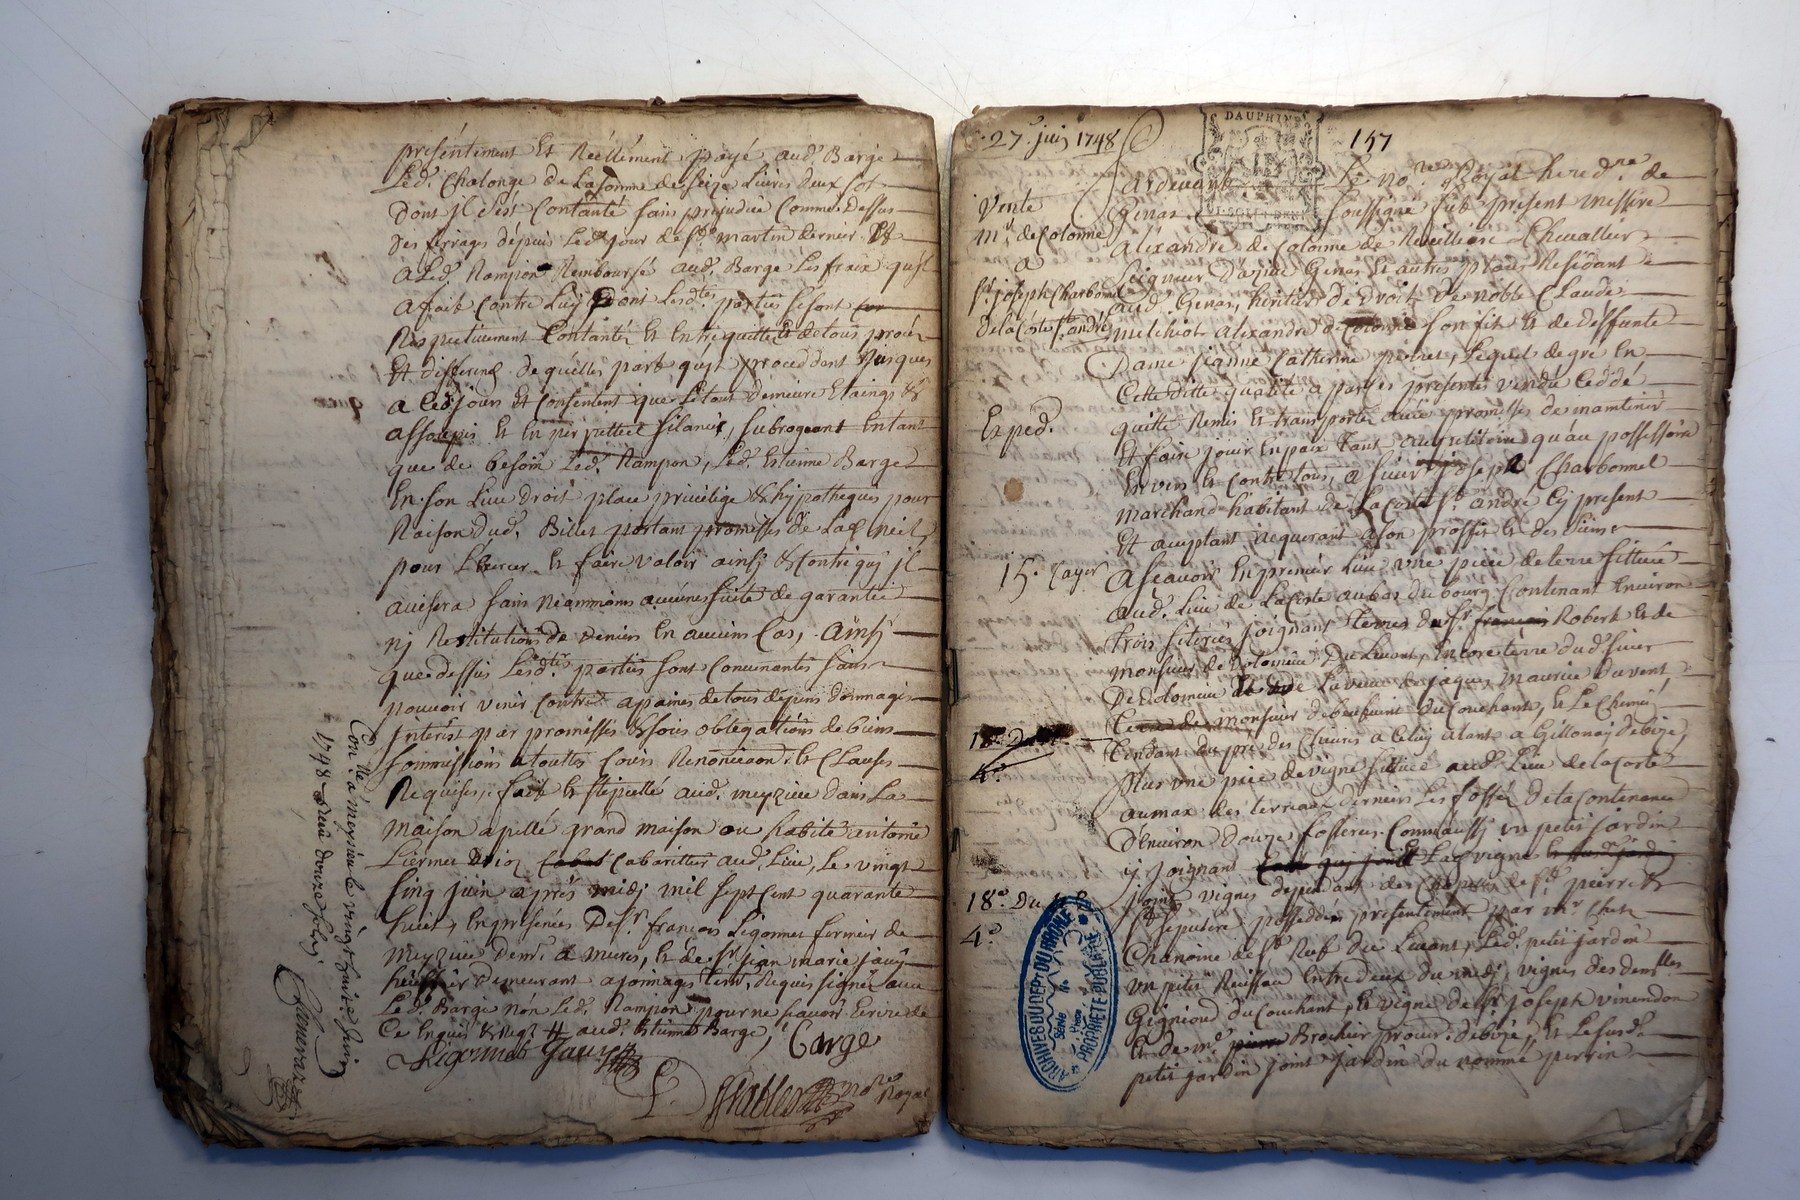 presentement Et Réellement payé aud. Barge
Led. Chalonge de La somme de seize Livres deux sol
Dont jl c'est Contanté sans prejudice Comme Dessus
des ferrages depuis Led. jour de st. martin dernier Et
a Led. Rampion Remboursé aud. Barge Les fraix qu'jl
a fait Contre Luy Dont Lesd.tes parties se sont
Respectivement Contanté Et Entrequitté de tous procés
Et differend de quélles part qu'js proceddent Jusques
a ced. jours Et Consentent que Le tout demeure Etaings &
assoupis Et En perpettuel silance, subrogeant Entant
que de besoin Led. Rampon, Led. Estienne Barge
En son Lieu Droit place privilége & hypotheques pour
Raison dud. Billet portant promesses de
pour L'Exercer Et faire valoir ainsj & Contre quj jl
avisera sans Neanmoins aucunes suite de garantie
nj Restitution de deniers En aucuns Cas, Ainsj
que dessus Lesd.tes parties sont Convenantes sans
pouvoir venir Contre a paines de tous depens dommages
jnterest par promesses & sous obligations de biens
soummissions a touttes Cours Renonciaon & Clauses
Requises, fait Et stipullé aud. meyzieu dans La
maison apellé grand maison ou habite antoine
Liermet Cabarittier aud. Lieu, Le vingt
sinq juin aprés midj mil sept Cent quarante
huit, En presences De sr. françois Ligonnet fermier de
Meyzieu dem.t a mures, Et de sr. jean marie jauy
huissier demeurant a jonnages tem. Requis signé avec
Led. Barge non Led. Rampion pour ne sçavoir Ecrire de
Ce Enquis & Requis aud. Estienne Barge,
Barge
Ligonnet Jauy
no.re Royal
Con.llé a meyzieu le vingt huit juin
1748 Reçu douze sols
27. juin 1748
DAUPHINÉ
157
Vente
Mr. de Colonne
a
sr. joseph Charbonnel
de la Côte st. andré
Exped.
Pardevant Le no.re Royal hered.re de
Genas soussigné fut present messire
Alexandre de Colonne de Chevallier
Seigneur D'azieu Genas Et autres places Residant
aud. Genas, héritier de Droit de noble Claude
melchiot alexandre de Colonne son fils Et de deffunte
Dame jeanne Catherine, Lequel de gré En
Cette ditte qualité a par ces présentes vendu Ceddé
quitté Remis Et transporté avec promesses de maintenir
Et faire jouir En paix tant au petitoire qu'au possessoire
Envers Et Contre tous, a sieur joseph Charbonnel
marchand habitant de La Coste st. andre Cy present
Et acceptant acquerant a son proffit Et des siens
15. Cayer
Asçavoir En premier Lieu une piece de terre sittuée
aud. Lieu de La Coste au bas du bourg Contenant Environ
trois siterées joignant terres du sr. françois Robert Et de
monsieur de Dolomieu Du Levant, Encore terre dud. sieur
De Dolomieu de La veuve de jaques maurice du vent,
Terre de monsieur du Couchant, Et Le Chemin
Tendant du pré des Chevres a Celuy alant a Gillonay de bize,
Plus une piece de vigne sittuée aud. Lieu de la Coste
au mas des terreaux derniers Les fossés De la Contenance
D'Environ douze fosserées Comm'aussj un petit jardin
y joignant
joint vignes dependant des Chapelles de st. pierre &
st. sepulcre posseddées presentement par mr.
18e. Du
4e.
Chanoine de st. Ruf du Levant, Led. petit jardin
un petit Ruisseau Entre deux du midj, vignes des dem.lles
Gignioud du Couchant, Et vigne de sr. joseph vinendon
Et de m.e Brochier procur. de bize, Et Le susd.
petit jardin joint jardin du nommé perrin
ARCHIVES DU DEPT DU RHONE
Série
PROPRIÉTÉ PUBLIQUE